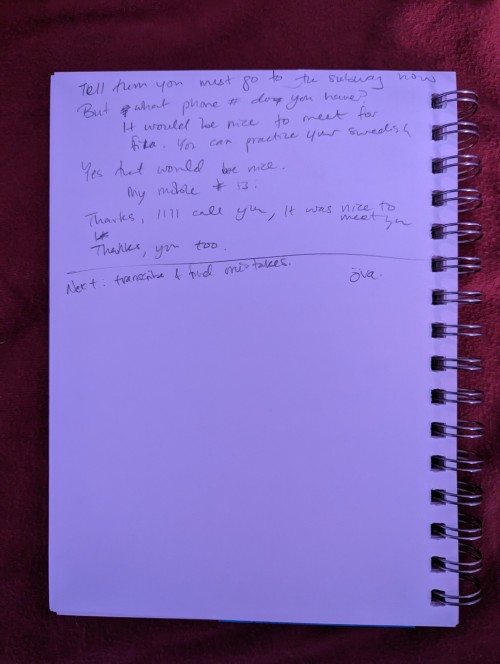 Tell them you must go to the subway now
But what phone # do you have?
It would be nice to meet for
fika. You can practice your swedish
Yes that would be nice.
My mobile # is.
Thanks, I'll call you, It was nice to
meet you
Thanks, you too.
Next: transcribe & find mistakes.
öva.